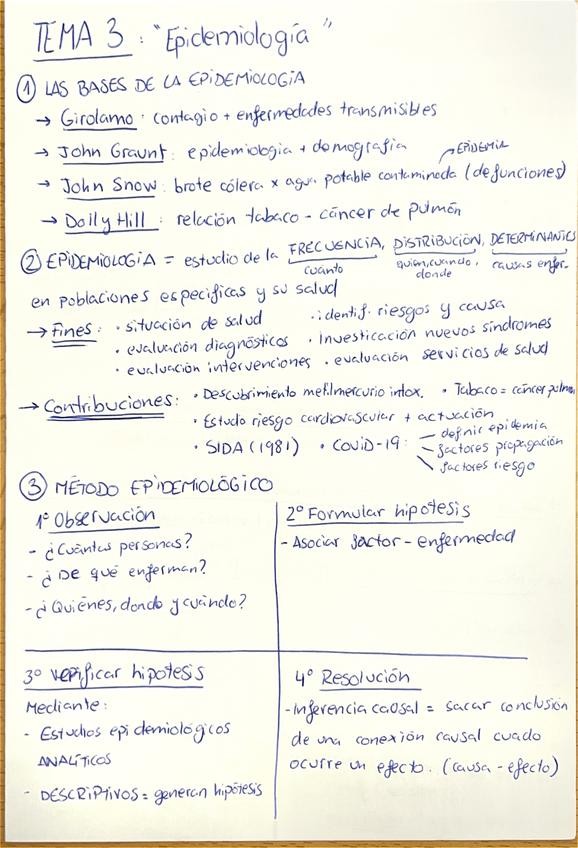 TEMA 3 : "Epidemiología"
① LAS BASES DE LA EPIDEMIOLOGÍA
→ Girolamo : contagio + enfermedades transmisibles
→ John Graunt : epidemiologia + demografía
→ John Snow : brote cólera x agua potable contaminada (defunciones) → EPIDEMIA
→ Dolly Hill : relación tabaco - cáncer de pulmón
② EPIDEMIOLOGÍA = estudio de la FRECUENCIA, DISTRIBUCIÓN, DETERMINANTES
cuanto quien, cuando, donde causas enfer.
en poblaciones especificas y su salud
→ Fines : · situación de salud · identif. riesgos y causa
· evaluación diagnósticos · Investicación nuevos síndromes
· evaluación intervenciones · evaluación servicios de salud
→ Contribuciones : · Descubrimiento metilmercurio intox. · Tabaco = cáncer pulmon
· Estudo riesgo cardiovascular + actuación
· SIDA (1981) · COVID-19 : — definir epidemia
— factores propagación
— factores riesgo
③ MÉTODO EPIDEMIOLÓGICO
1º Observación
- ¿Cuántas personas?
- ¿De qué enferman?
- ¿Quiénes, dondo y cuándo?
2º Formular hipotesis
- Asociar factor - enfermedad
3º verificar hipotesis
Mediante :
- Estudios epidemiológicos
ANALÍTICOS
- DESCRIPTIVOS = generan hipótesis
4º Resolución
- Inferencia causal = sacar conclusión
de una conexión causal cuado
ocurre un efecto. (causa - efecto)